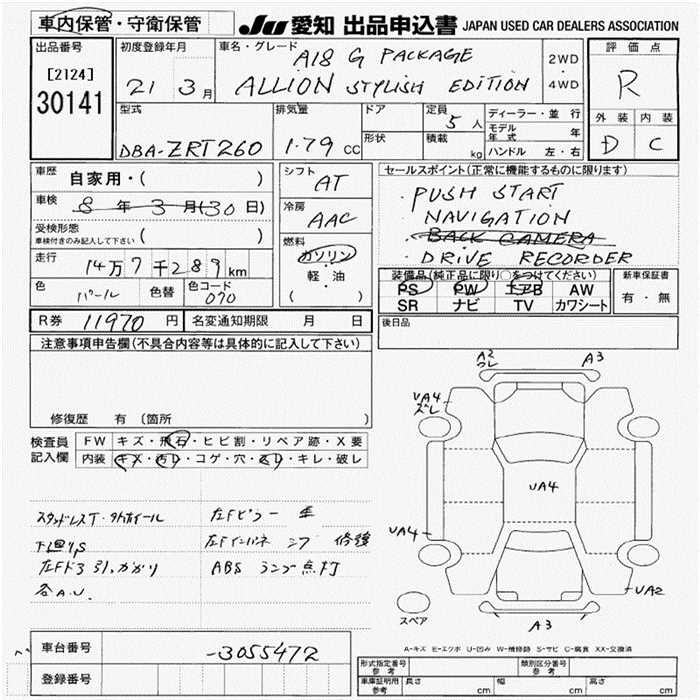 車内保管・守衛保管
JU 愛知 出品申込書 JAPAN USED CAR DEALERS ASSOCIATION
出品番号
[2124]
30141
初度登録年月
21 3月
車名・グレード
A18 G PACKAGE
ALLION STYLISH EDITION
2WD
・
4WD
評価点
R
外装 内装
D C
型式
DBA-ZRT260
排気量
1.79 CC
ドア
形状
定員
5人
積載
kg
ディーラー・並行
モデル年式 年
ハンドル 左・右
車歴 自家用・( )
車検 8年3月(30日)
受検形態
車検付きのみ記入して下さい ( )
走行
14万7千289km
色 パール 色替 色コード 070
シフト
AT
冷房
AAC
燃料
ガソリン
・
軽・油
( )
セールスポイント(正常に機能するものに限ります)
・PUSH START
NAVIGATION
・BACK CAMERA
・DRIVE RECORDER
装備品(純正品に限り○をつけてください)
PS PW エアB AW
SR ナビ TV カワシート
新車保証書
有・無
R券 11970円 名変通知期限 月 日
後日品
注意事項申告欄(不具合内容等は具体的に記入して下さい)
修復歴 有 (箇所 )
検査員記入欄
FW キズ・飛石・ヒビ割・リペア跡・X要
内装 キズ・汚レ・コゲ・穴・スレ・キレ・破レ
スタッドレスT・外ホイール
下廻りS
左Fドア引っカカリ
各A.U.
左Fピラー
左Fインパネ 修韓
ABSランプ点灯
A2
ワレ
A3
UA4
ズレ
UA4
UA4
UA2
A3
スペア
A-キズ E-エクボ U-凹み W-補修跡 S-サビ C-腐食 XX-交換済
車台番号 -3055472
登録番号
形式指定番号 参考
類別区分番号 参考
車庫証明用 参考 長さ cm 幅 cm 高さ cm